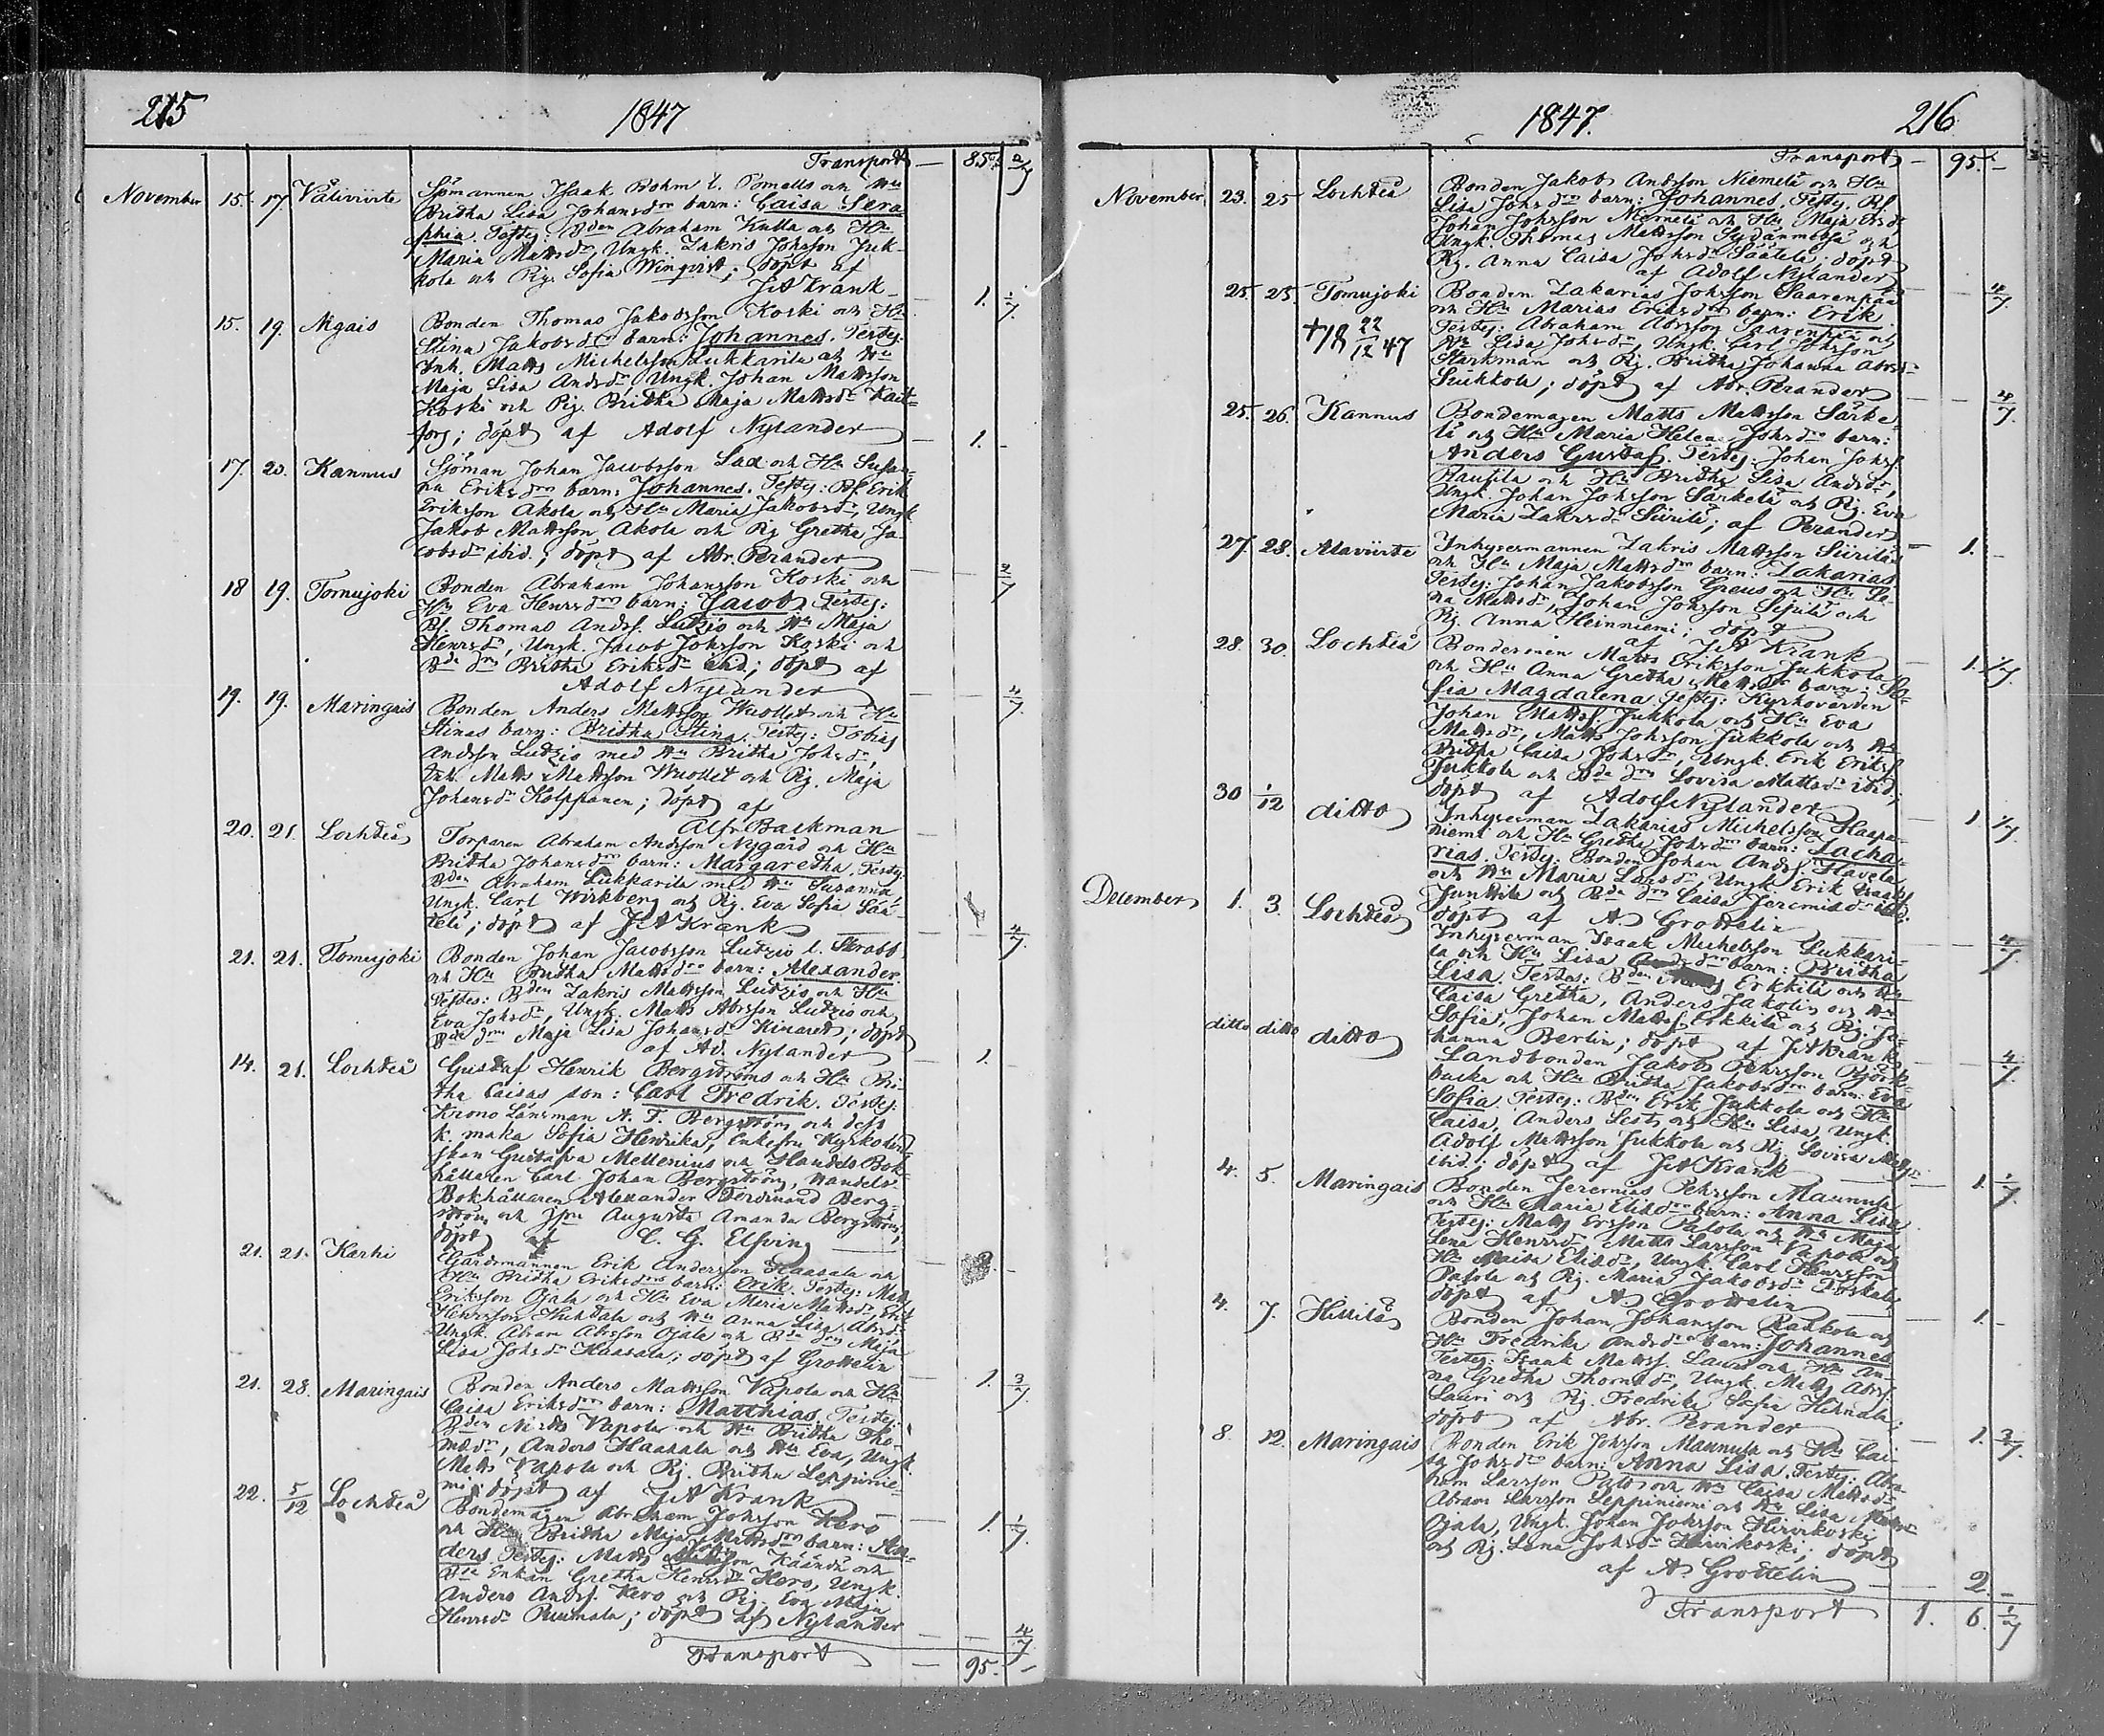 215
1847
Transport — 85
November 15. 17. Wäliviirte Sjömannen Isaak Bohm l. Pomells och Hu
Britha Lisa Johansdrs barn: Caisa Sera-
phia. Testes: Bden Abraham Kulla och Hu
Maria Mattsdr, Ungk. Zakris Johsson Juk-
kola och Pig. Sofia Winqvist; döpt af
J A Krank — 1.
15. 19. Algais Bonden Thomas Jakobsson Koski och Hu
Stina Jakobsdrs barn: Johannes. Testes:
Inh. Matts Michelsson Lukkarila och Hu
Maja Lisa Andsdr, Ungk. Johan Mattsson
Koski och Pig. Britha Maja Mattsdr
fors; döpt af Adolf Nylander — 1. -
17. 20. Kannus Sjöman Johan Jacobsson Lax och Hu Susan-
na Eriksdrs barn: Johannes. Testes: Bf. Erik
Eriksson Akola och Hu Maria Jakobsdr, Ungk
Jakob Mattsson Akola och Pig Gretha Ja-
cobsdr ibid.; döpt af Abr. Perander — 4/7
18 19. Tomujoki Bonden Abraham Johansson Koski och
Hu Eva Henrsdrs barn: Jacob. Testes:
Bf. Thomas Andsf. Ludzio och Hu Maja
Henrsdr, Ungk. Jacob Johsson Koski och
Bde drn Britha Eriksdr ibid; döpt af
Adolf Nylander — 4/7.
19. 19. Maringais Bonden Anders Mattsson Wuollet och Hu
Stinas barn: Britha Stina. Testes: Tobias
Andsson Ludzio med Hu Britha Johsdr,
Inh. Matts Mattsson Wuollet och Pig. Maja
Johansdr Kolppanen; döpt af
Alfr Backman —
20. 21. Lochteå Torparen Abraham Andsson Nygård och Hu
Britha Johansdrs barn: Margaretha. Testes:
Bden Abraham Lukkarila med Hu Susanna
Ungk. Carl Wirkberg och Pig. Eva Sofia Sää-
telä; döpt af J A Krank — 4/7.
21. 21. Tomujoki Bonden Johan Jacobsson Ludzio l. Skrabb
och Hu Britha Mattsdrs barn: Alexander.
Testes: Bden Zakris Mattsson Ludzio och Hu
Eva Johsdr, Ungk. Matts Abrsson Ludzio och
Bde drn Maja Lisa Johansdr Kinaret; döpt
af Ad. Nylander — 1. -
14. 21. Lochteå Gustaf Henrik Bergströms och Hu Bri-
tha Caisas son: Carl Fredrik. Testes:
Krono Länsman A. F. Bergström och dess
k. maka Sofia Henrika, Enkefru
Gustafva Mellenius och Handels Bok-
hållaren Carl Johan Bergström, Handels-
Bokhållaren Alexander Ferdinand Berg-
ström och Jfru Augusta Amanda Bergström;
döpt af C. G. Elfving —
21. 21. Karhi Gårdsmannen Erik Andersson Haasala och
Hu Britha Eriksdrs barn: Erik. Testes: Matts
Eriksson Ojala och Hu Eva Maria Mattsdr, Erik
Henrsson Huhtala och Hu Anna Lisa Abrsdr
Ungk. Abram Abrsson Ojala och Bde drn Maja
Lisa Johsdr Haasala; döpt af Grottelin
21. 28. Maringais Bonden Anders Mattsson Vapola och Hu — 1. 3/7
Caisa Eriksdrs barn: Matthias. Testes:
Bden Matts Vapola och Hu Britha Tho-
masdr, Anders Haasala och Hu Eva, Ungk.
Matts Vapola och Pig. Britha Leppinie-
mi; döpt af J A Krank
22. 5/12 Lochteå Bondemågen Abraham Johsson Kero — 1. 1/7.
och Hu Britha Maja Mattsdrs barn: An-
ders. Testes: Matts Kääntä och
Bde Enkan Gretha Henrsdr Kero, Ungk.
Anders Andsf. Kero och Pig. Eva Maja
Henrsdr Ruumala; döpt af Nylander — 4/7
Transport — 95. -
1847.
216
Transport — 95. -
November 23. 25 Lochteå Bonden Jakob Andsson Niemelä och Hu
Lisa Johsdrs barn: Johannes. Testes: Bf.
Johan Johsson Niemelä och Hu Maja Ersdr
Ungk. Thomas Mattsson Sydänmetsä och
Pig. Anna Caisa Johsdr Säätelä; döpt
af Adolf Nylander — 4/7.
25. 25. Tomujoki Bonden Zakarias Johsson Saarenpää
och Hu Marias Eriksdrs barn: Erik
+18 22/12 47
Testes: Abraham Abrsson Saarenpää och
Hu Lisa Johsdr, Ungk. Carl
Starkman och Pig. Britha Johanna Abrsdr
Luukkola; döpt af Abr. Perander — 4/7.
25. 26. Kannus Bondemågen Matts Mattsson Särke-
lä och Hu Maria Helena Johsdrs barn:
Anders Gustaf. Testes: Johan Johsf.
Rautila och Hu Britha Lisa Andsdr,
Ungk. Johan Johsson Särkelä och Pig. Eva
Maria Zakrsdr Siirilä; af Perander — 1. -
27. 28. Alaviirte Inhysesmannen Zakris Mattsson Siirilä
och Hu Maja Mattsdrs barn: Zakarias
Testes: Johan Jakobsson Greus och Hu Le-
na Mattsdr, Johan Johsson Sipilä och
Pig. Anna Heinniemi; döpt
af J A Krank — 1. 1/7.
28. 30. Lochteå Bondemån Matts Eriksson Jukkola
och Hu Anna Gretha Mattsdr barn: So-
fia Magdalena. Testes: Kyrkovärden
Johan Mattsf. Jukkola och Hu Eva
Mattsdr, Matts Johsson Jukkola och Hu
Britha Caisa Johsdr, Ungk. Erik Eriksf
Jukkola och Bde drn Lovisa Mattsdr ibid;
döpt af Adolf Nylander — 1 1/7
30 1/12 ditto Inhysesman Zakarias Michelsson Haapa-
niemi och Hu Gretha Johsdrs barn: Zacha-
rias. Testes: Bonden Johan Andsf. Havela
och Hu Maria Larsdr, Ungk. Erik Isaaksf
Junttila och Bde drn Caisa Jeremiedr ibid:
döpt af A. Grottelin — 4/7
December 1. 3. Lochteå Inhysesman Isaak Michelsson Lukkari-
la och Hu Lisa barn: Britha
Lisa. Testes: Bden Erkkilä och Hu
Caisa Gretha, Anders Jakolin och Hu
Sofia, Johan Mattsf. Erkkilä och Pig. Jo-
hanna Berlin; döpt af J A Krank — 4/7.
ditto ditto ditto Landbonden Jakob Pehrsson Björk-
backa och Hu Britha Jakobsdrs barn: Eva
Sofia. Testes: Bden Erik Jukkola och Hu
Caisa, Anders Lests och Hu Lisa, Ungk.
Adolf Mattsson Jukkola och Pig. Lovisa Mattsdr
ibid.; döpt af J A Krank — 1. 1/7.
4. 5. Maringais Bonden Jeremias Pehrsson Maunula
och Hu Maria Eliedrs barn: Anna Lisa.
Testes: Matts Ersson Palola och Hu Maja
Lena Henrsdr, Matts Larsson Vapola och
Hu Caisa Eliedr, Ungk. Carl Henrsson
Palola och Pig. Maria Jakobsdr
döpt af A. Grottelin — 1. -
4. 7. Hillilä Bonden Johan Johansson Rahkola och
Hu Fredrika Andsdrs barn: Johannes.
Testes: Isaak Mattsf. Lauri och Hu An-
na Gretha Thomsdr, Ungk. Matts Abrsf.
Lauri och Pig. Fredrika Sofia Hihnala;
döpt af Abr. Perander — 1. 3/7.
8. 12. Maringais Bonden Erik Johsson Maunula och Hu Cai-
sa Johsdrs barn: Anna Lisa. Testes: Abra-
ham Larsson Palo och Hu Caisa Mattsdr
Abram Larsson Leppiniemi och Hu Lisa
Ojala, Ungk. Johan Johsson Hirvikoski
och Pig. Lena Johsdr Hirvikoski; döpt
af A. Grottelin — 2. -
Transport 1. 6. 1/7